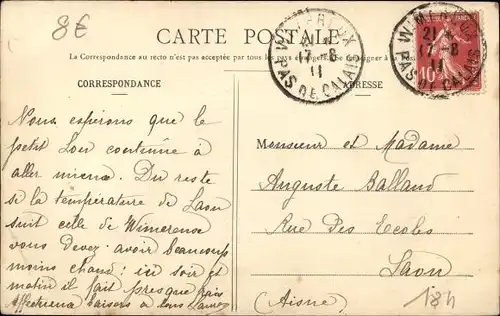 8€
CARTE POSTALE
La Correspondance au recto n'est pas acceptée par tous les pays étrangers. Se renseigner à la Poste
CORRESPONDANCE
ADRESSE
WIMEREUX
21
17-8
11
PAS DE CALAIS
WIMEREUX
21
17-8
11
PAS DE CALAIS
10
Nous espérons que le
petit Lou continue à
aller mieux. Du reste
si la température de Laon
suit celle de Wimereux
vous devez avoir beaucoup
moins chaud : ici soir et
matin il fait presque frais
Affectueux baisers à tous
Monsieur et Madame
Auguste Balland
Rue Des Ecoles
Laon
(Aisne)